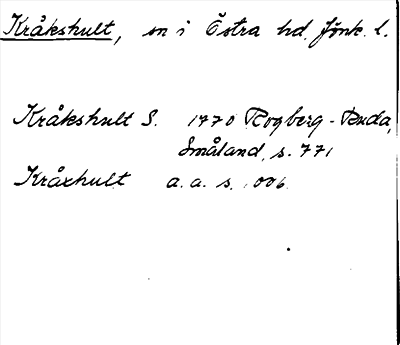 Kråkshult, sn i Östra hd. Jönk. l.
Kråkshult S. 1770 Rogberg-Ruda,
Småland, s. 771
Kråxhult a. a. s. 006